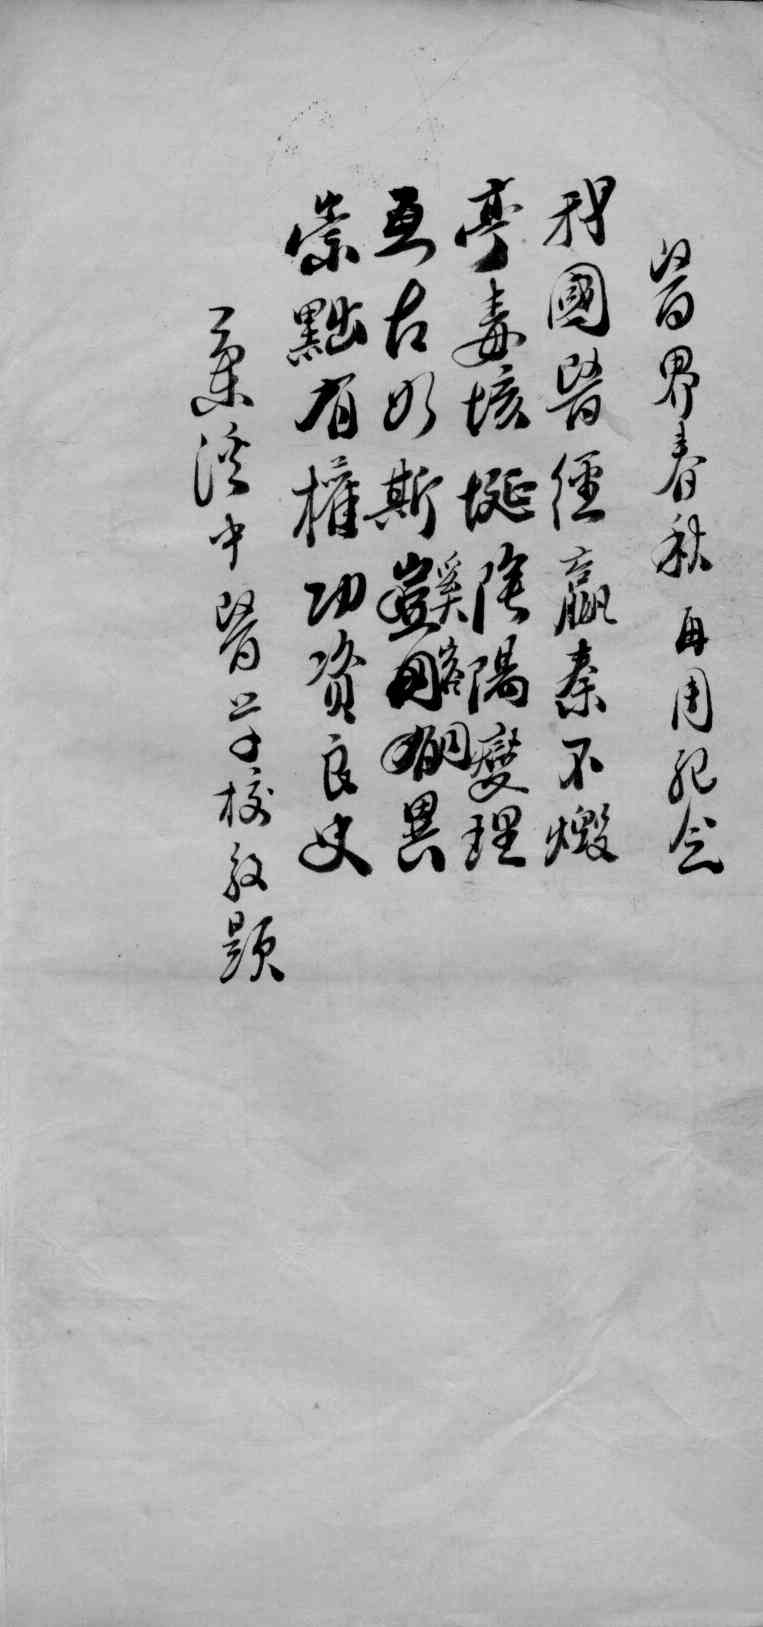 醫界春秋再周紀念
我國醫經嬴秦不燬
亭毒垓埏陰陽燮理
亙古如斯奚容異
崇黜有權功資良史
蘭溪中醫學校敬題